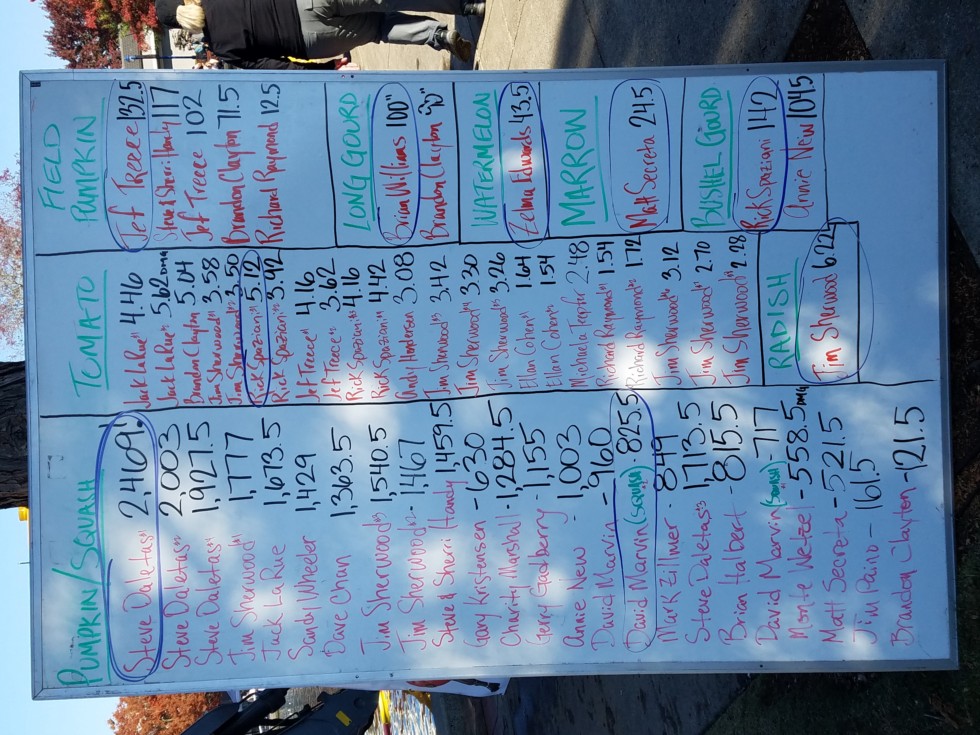 PUMPKIN/SQUASH
Steve Daletas 2,469!
Steve Daletas 2,003
Steve Daletas 1,927.5
Jim Sherwood 1,777
Jack LaRue 1,673.5
Sandy Wheeler 1,429
Dave Chan 1,363.5
Jim Sherwood 1,540.5
Jim Sherwood - 1,467
Steve & Sherri Handy 1,459.5
Gary Kristensen - 630
Charity Marshall - 1,284.5
Gerry Gadberry - 1,155
Annie New 1,003
David Marvin - 960
David Marvin (SQUASH) - 825.5
Mark Zillmer - 849
Steve Daletas 1,713.5
Brian Halbert - 815.5
David Marvin (SQUASH) - 717
Monte Wetzel - 558.5 DMG
Matt Secreta - 521.5
Jim Paino - 161.5
Brandon Clayton - 121.5
TOMATO
Jack LaRue 4.46
Jack LaRue 5.62 DMG
Brandon Clayton 5.04
Jim Sherwood 3.58
Jim Sherwood 3.50
Rick Spaziani 5.12
Rick Spaziani 3.92
Jef Treece 4.16
Jef Treece 3.62
Rick Spaziani 4.16
Rick Spaziani 4.42
Andy Henderson 3.08
Jim Sherwood 3.42
Jim Sherwood 3.30
Jim Sherwood 3.26
Ellan Cohen 1.64
Ellan Cohen 1.54
Michaela 2.48
Richard Raymond 1.54
Richard Raymond 1.72
Jim Sherwood 3.12
Jim Sherwood 2.70
Jim Sherwood 2.98
RADISH
Jim Sherwood 6.22
FIELD
PUMPKIN
Jef Treece 132.5
Steve & Sherri Handy 117
Jef Treece 102
Brandon Clayton 71.5
Richard Raymond 12.5
LONG GOURD
Brian Williams 100"
Brandon Clayton 90"
WATERMELON
Zelma Edwards 43.5
MARROW
Matt Secreta 24.5
BUSHEL GOURD
Rick Spaziani 142
Annie New 104.5